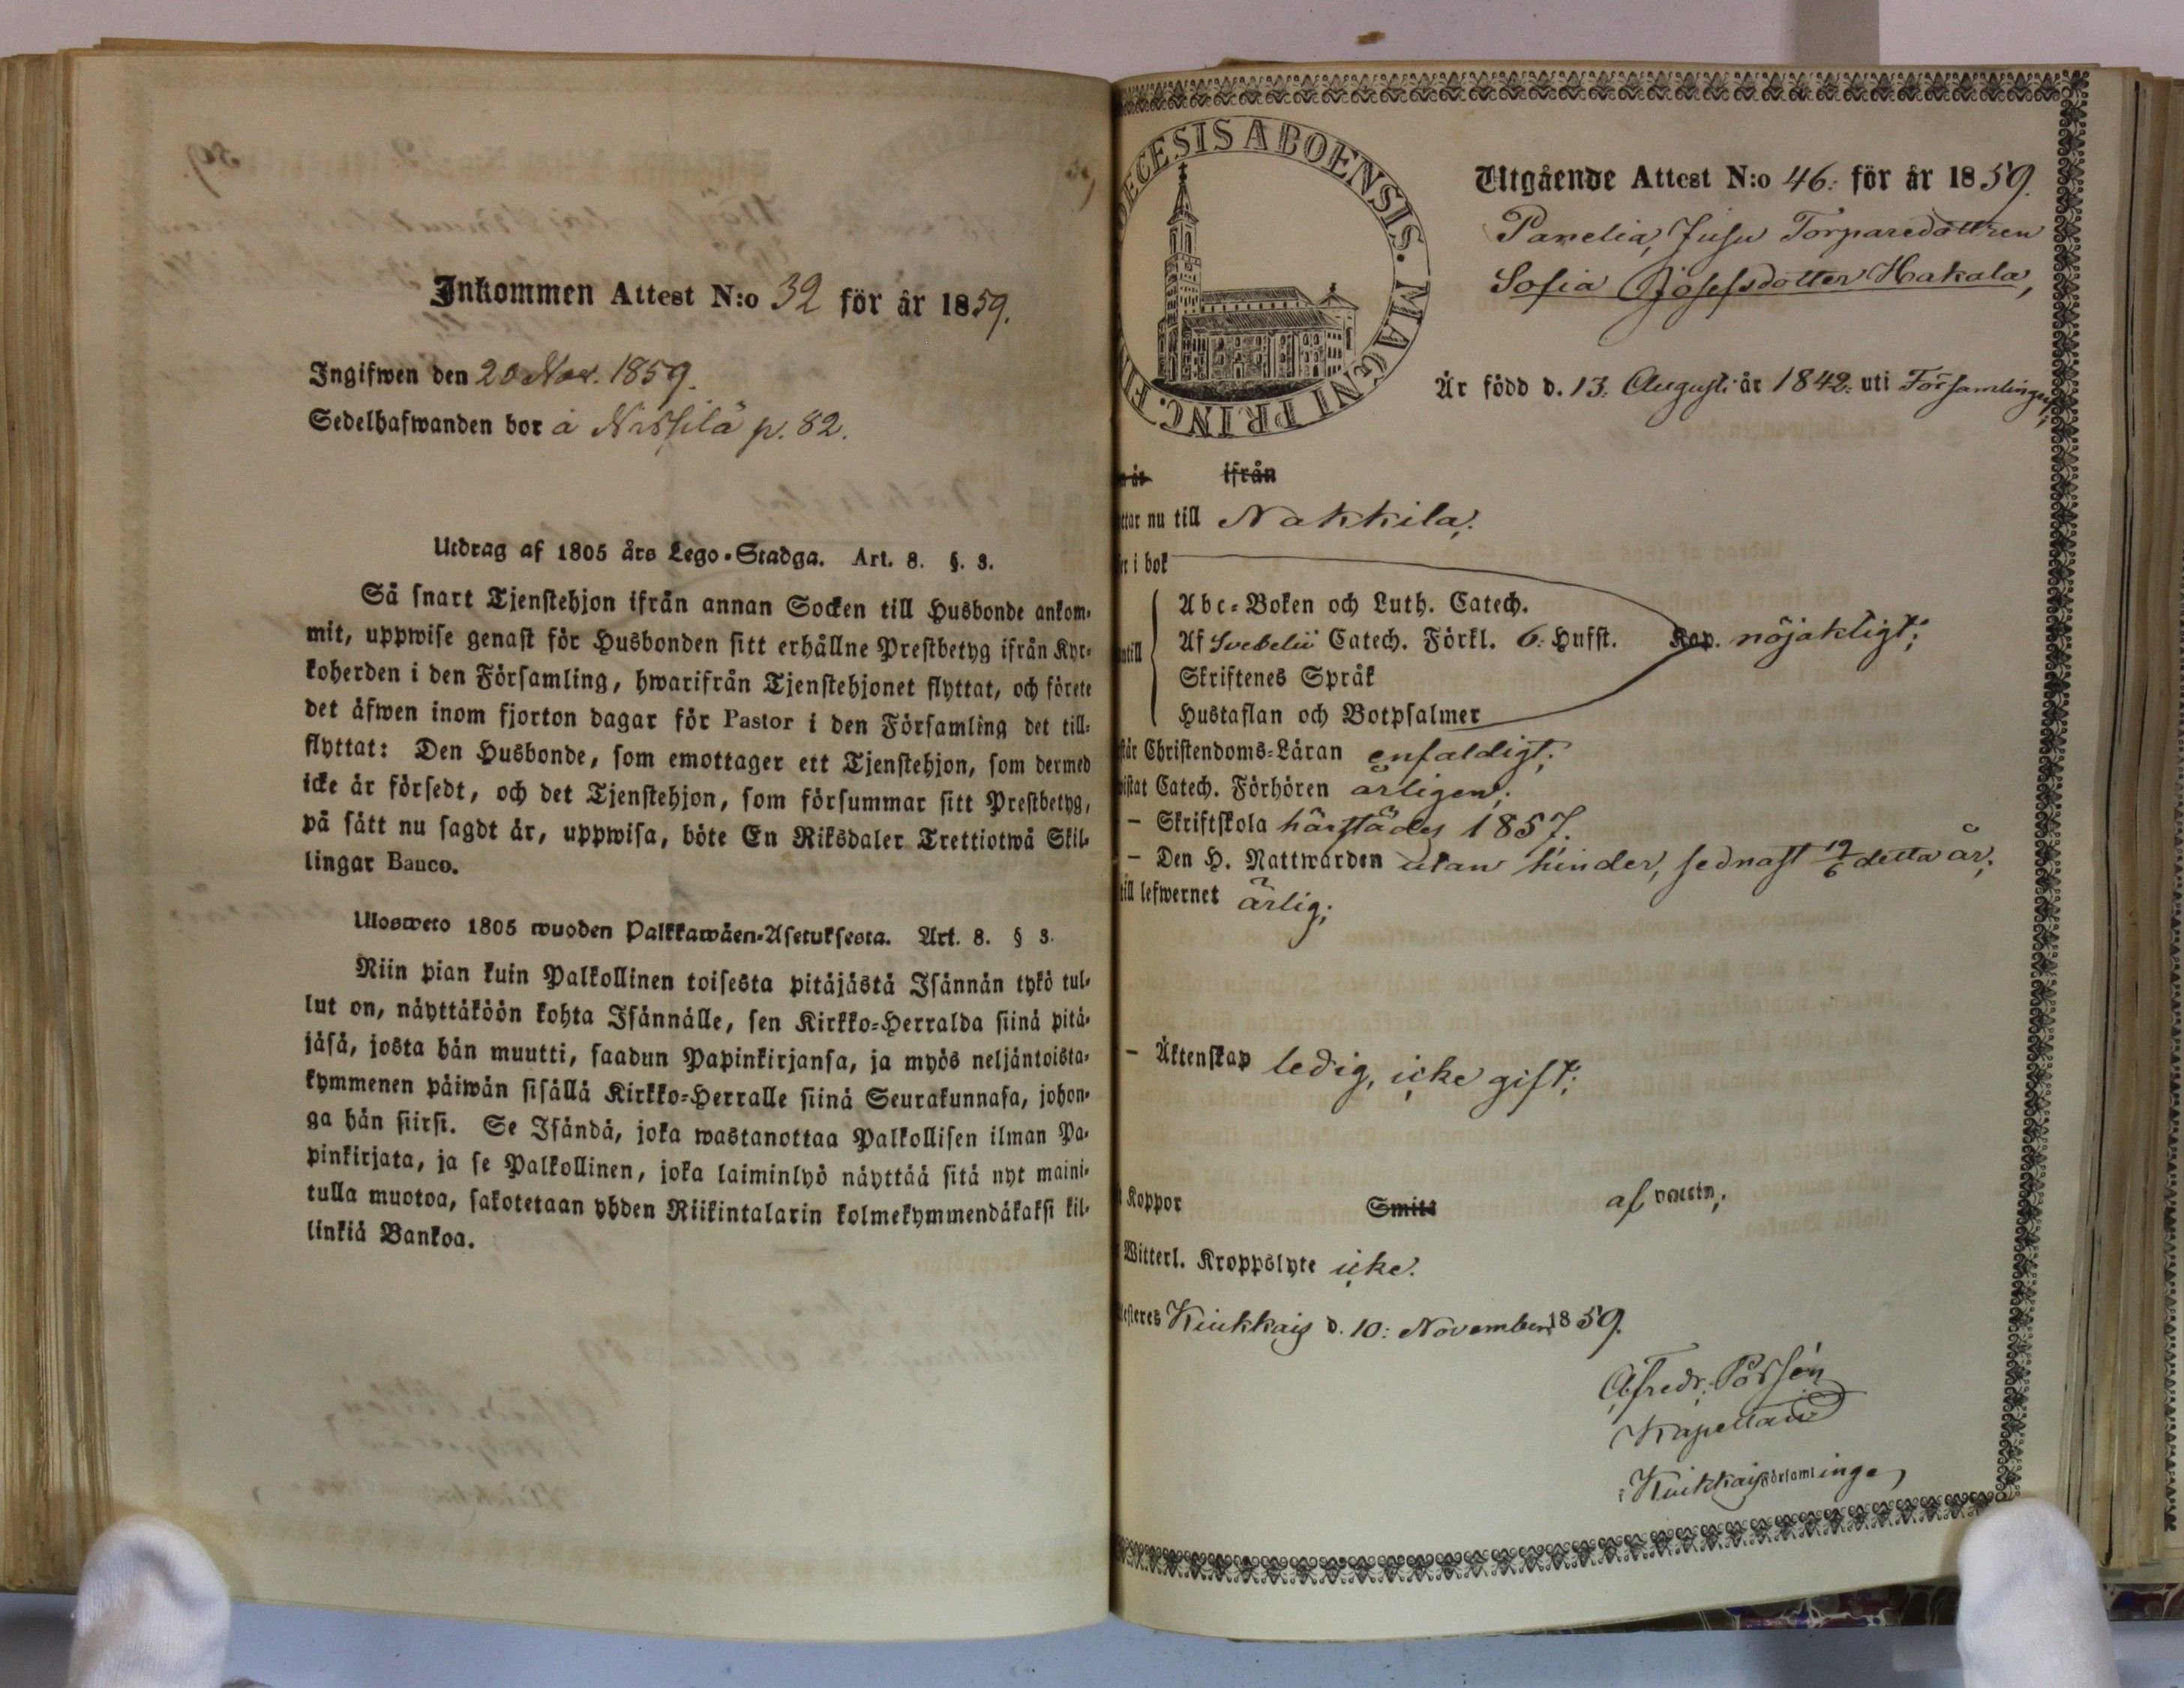 Inkommen Attest N:o 32 för år 1859.
Ingifwen den 20 Nov. 1859.
Sedelhafwanden bor å Nassila p. 82.
Utdrag af 1805 års Lego-Stadga. Art. 8. §. 3.
Så snart Tjenstehjon ifrån annan Socken till Husbonde ankom-
mit, uppwise genast för Husbonden sitt erhållne Prestbetyg ifrån Kyr-
koherden i den Församling, hwarifrån Tjenstehjonet flyttat, och förete
det äfwen inom fjorton dagar för Pastor i den Församling det till-
flyttat: Den Husbonde, som emottager ett Tjenstehjon, som dermed
icke är försedt, och det Tjenstehjon, som försummar sitt Prestbetyg,
på sätt nu sagdt är, uppwisa, böte En Riksdaler Trettiotwå Skil-
lingar Banco.
Uloswero 1805 wuoden Palkkawäen-Asetuksesta. Art. 8. § 3.
Niin pian kuin Palkollinen toisesta pitäjästä Isännän tykö tul-
lut on, näyttäköön kohta Isännälle, sen Kirkko-Herralda siinä pitä-
jäsä, josta hän muutti, saadun Papinkirjansa, ja myös neljäntoista-
kymmenen päiwän sisällä Kirkko-Herralle siinä Seurakunnasa, johon-
ga hän siirsi. Se Isändä, joka wastanottaa Palkollisen ilman Pa-
pinkirjata, ja se Palkollinen, joka laiminlyö näyttää sitä nyt maini-
tulla muotoa, sakotetaan yhden Riikintalarin kolmekymmendäkaksi kil-
linkiä Bankoa.
DIECESIS ABOENSIS. MAGNI PRINC. FIN
Utgående Attest N:o 46. för år 1859.
Panelia, Jusu Torparedottren
Sofia Josefsdotter Hakala,
Är född d. 13. Augusti år 1842. uti Församlingen;
ifrån
ttar nu till Nakkila;
er i bok
Abc-Boken och Luth. Catech.
ntill Af Svebelii Catech. Förkl. 6. Hufst. Kap. nöjaktigt;
Skriftenes Språk
Hustaflan och Botpsalmer
står Christendoms-Läran enfaldigt;
istat Catech. Förhören årligen;
– Skriftskola härstädes 1857.
– Den H. Nattwarden utan hinder, sednast 19/6 detta år;
till lefwernet ärlig;
– Äktenskap ledig, icke gift;
Koppor Smitt af naturen;
Witterl. Kroppslyte icke.
esteres Kiukkais d. 10. November 1859.
Alfredr. Forssén
Kapellan
i Kiukkais Församlinge,